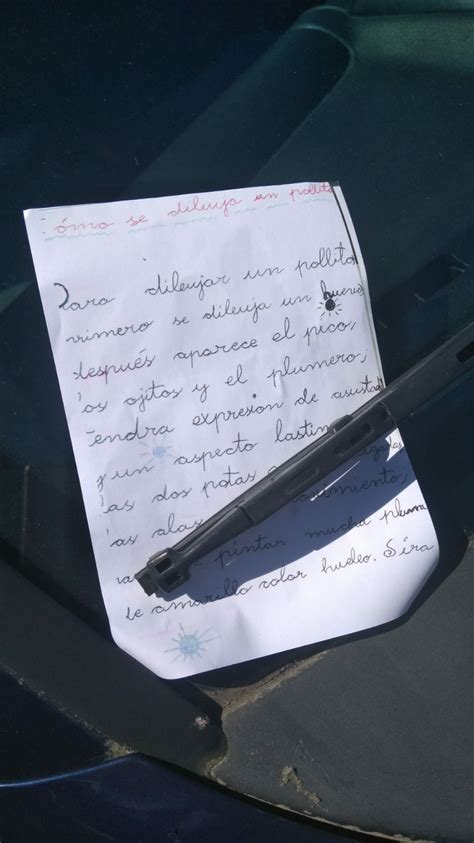 ómo se dibuja un pollito
Para dibujar un pollito
primero se dibuja un huevo
después aparece el pico,
los ojitos y el plumero,
Tendra expresion de asustado
y un aspecto
las dos patas
las alas
pintar mucha pluma
de amarillo color Sira